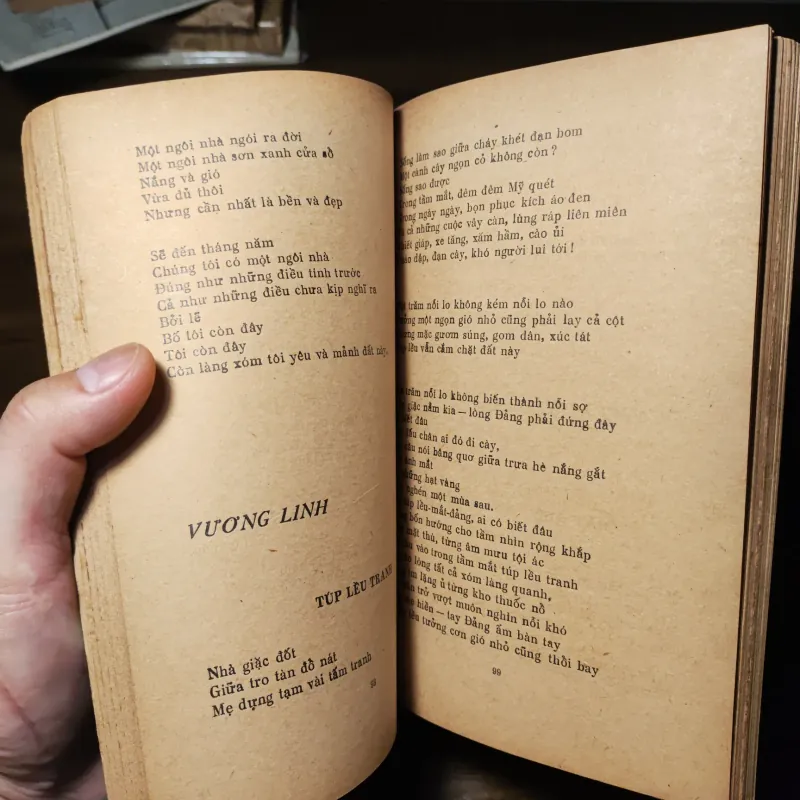 Một ngôi nhà ngói ra đời
Một ngôi nhà sơn xanh cửa sổ
Nắng và gió
Vừa đủ thôi
Nhưng cần nhất là bền và đẹp
Sẽ đến tháng năm
Chúng tôi có một ngôi nhà
Đúng như những điều tính trước
Cả như những điều chưa kịp nghĩ ra
Bởi lẽ
Bố tôi còn đây
Tôi còn đây
Còn làng xóm tôi yêu và mảnh đất này.
VƯƠNG LINH
TÚP LỀU TRANH
Nhà giặc đốt
Giữa tro tàn đổ nát
Mẹ dựng tạm vài tấm tranh
98
Sống làm sao giữa cháy khét đạn bom
Một cành cây ngọn cỏ không còn?
Sống sao được
Trong tầm mắt, đêm đêm Mỹ quét
Trong ngày ngày, bọn phục kích áo đen
Và cả những cuộc vây càn, lùng ráp liên miên
giáp, xe tăng, xăm hầm, cào ủi
dập, đạn cày, khó người lui tới!
trăm nỗi lo không kém nỗi lo nào
một ngọn gió nhỏ cũng phải lay cả cột
mặc gươm súng, gom dân, xúc tát
lều vẫn cắm chặt đất này
trăm nỗi lo không biến thành nỗi sợ
giặc nằm kia — lòng Đảng phải đứng đây
đâu
dấu chân ai đó đi cày,
câu nói bâng quơ giữa trưa hè nắng gắt
mắt
những hạt vàng
nghén một mùa sau.
lều-mắt-đảng, ai có biết đâu
bốn hướng cho tầm nhìn rộng khắp
mặt thù, từng âm mưu tội ác
vào trong tầm mắt túp lều tranh
lòng tất cả xóm làng quanh,
lặng ủ từng kho thuốc nổ
trở vượt muôn nghìn nỗi khó
hiền — tay Đảng ấm bàn tay
tưởng cơn gió nhỏ cũng thổi bay
99